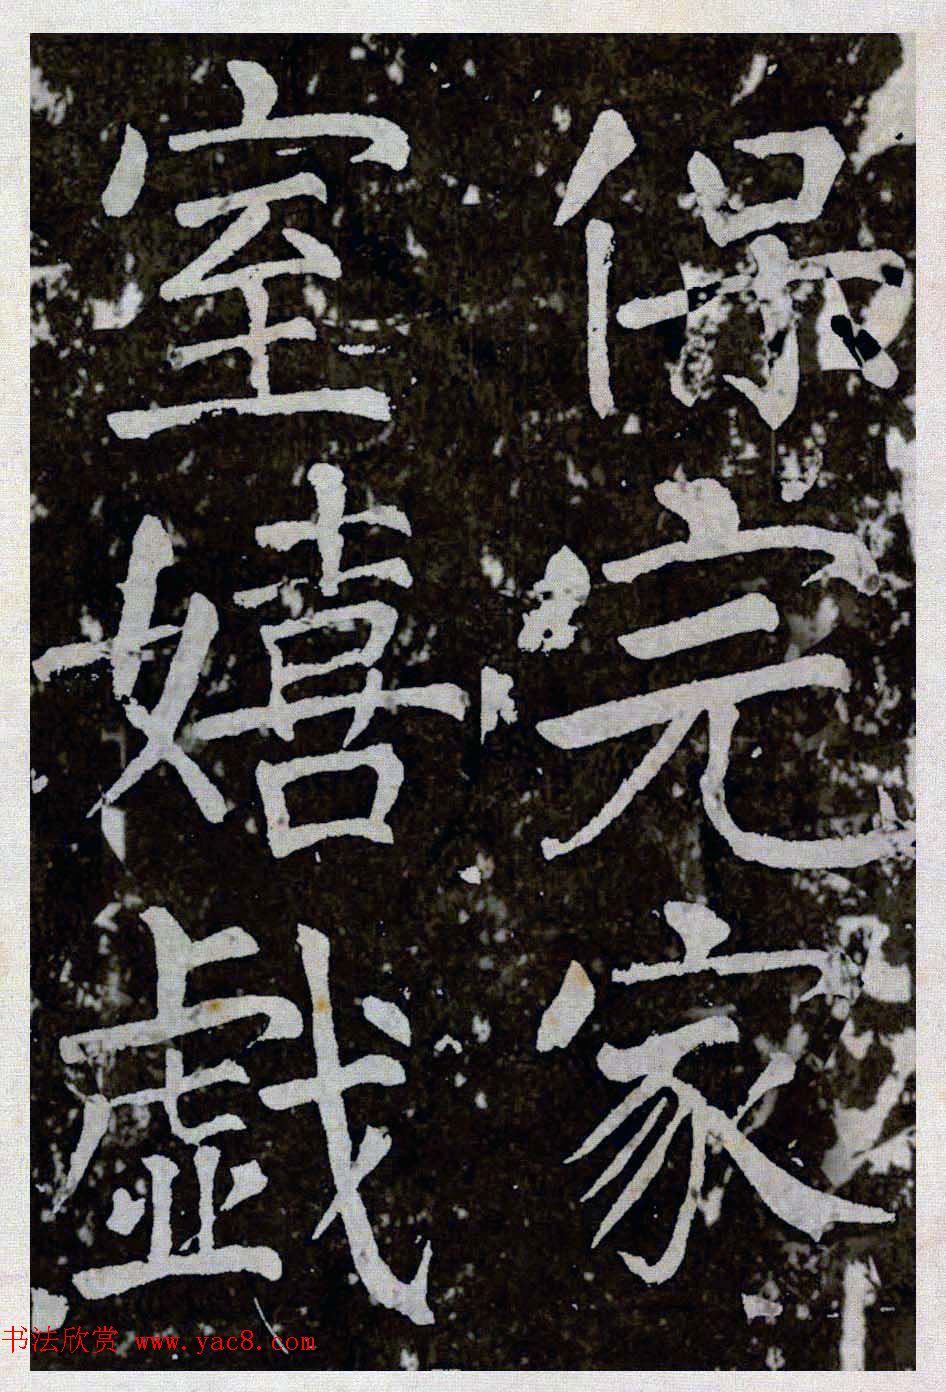 保完家
室嬉戱
书法欣赏 www.yac8.com